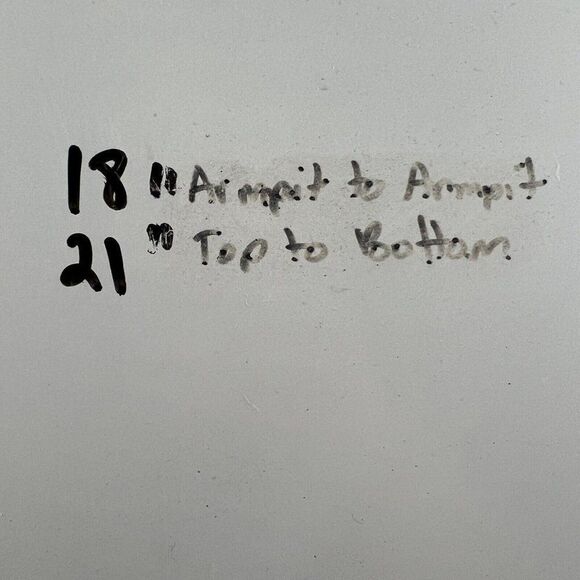 18" Armpit to Armpit
21" Top to Bottom